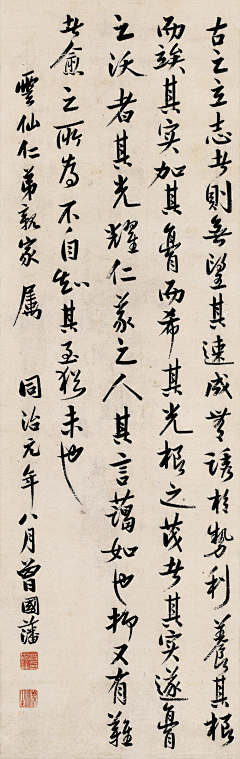 古之立志者則無望其速成無誘於勢利養其根
而竢其实加其膏而希其光根之茂者其实遂膏
之沃者其光耀仁義之人其言藹如也抑又有難
者愈之所為不自知其至猶未也
雲仙仁弟親家屬 同治元年八月曾國藩